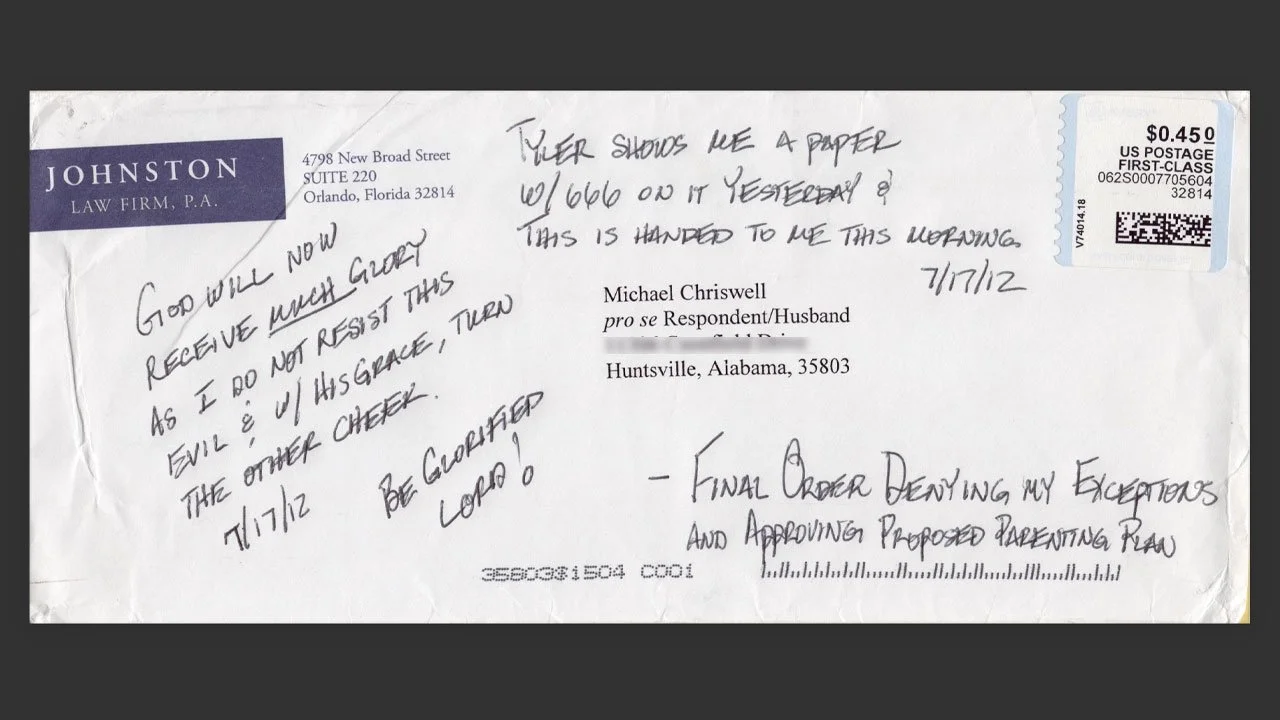 JOHNSTON
LAW FIRM, P.A.
4798 New Broad Street
SUITE 220
Orlando, Florida 32814
TYLER SHOWS ME A PAPER
W/ 666 ON IT YESTERDAY &
THIS IS HANDED TO ME THIS MORNING.
7/17/12
$0.450
US POSTAGE
FIRST-CLASS
062S0007705604
32814
V74014.18
GOD WILL NOW
RECEIVE MUCH GLORY
AS I DO NOT RESIST THIS
EVIL & W/ HIS GRACE, TURN
THE OTHER CHEEK.
7/17/12
BE GLORIFIED
LORD!
Michael Chriswell
pro se Respondent/Husband
Huntsville, Alabama, 35803
- FINAL ORDER DENYING MY EXCEPTIONS
AND APPROVING PROPOSED PARENTING PLAN
35803$1504 C001